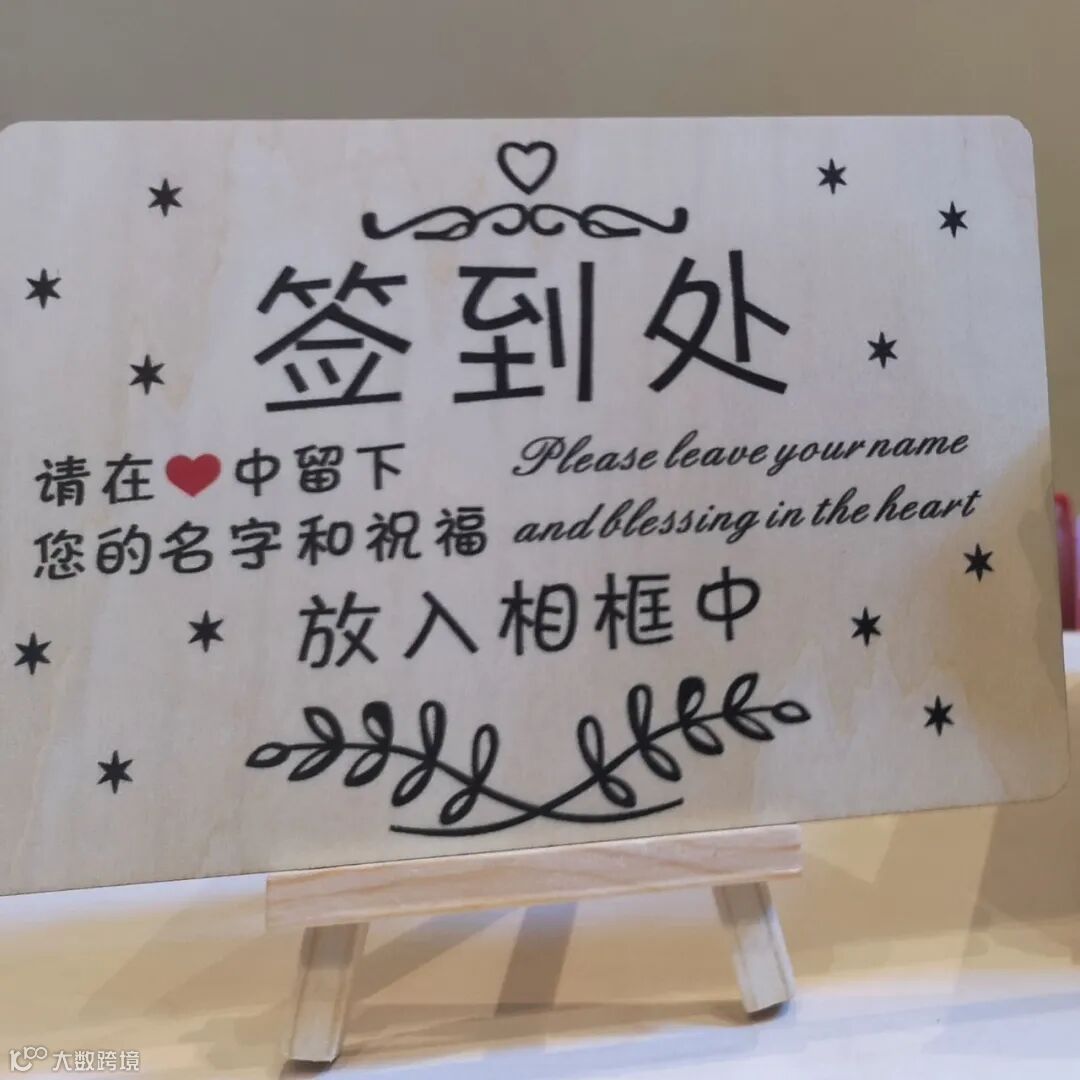 签到处
请在❤中留下
您的名字和祝福
Please leave your name
and blessing in the heart
放入相框中
大数跨境